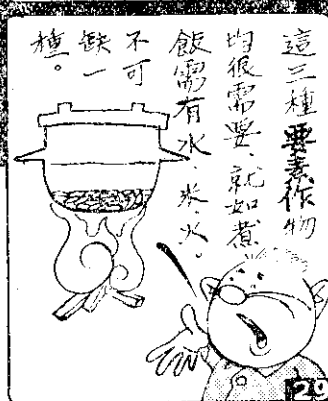 這三種要素作物
均很需要、就如煮
飯需有水、米、火。
不可
缺一
種。
29